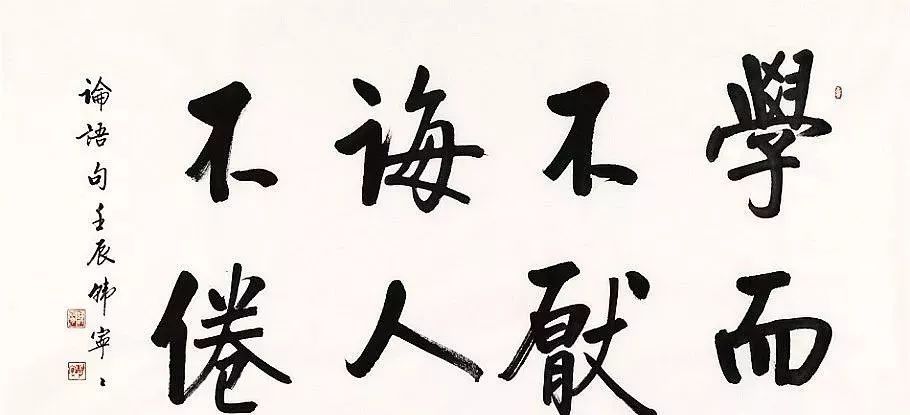 學而
不厭
誨人
不倦
論語句壬辰韓寧々